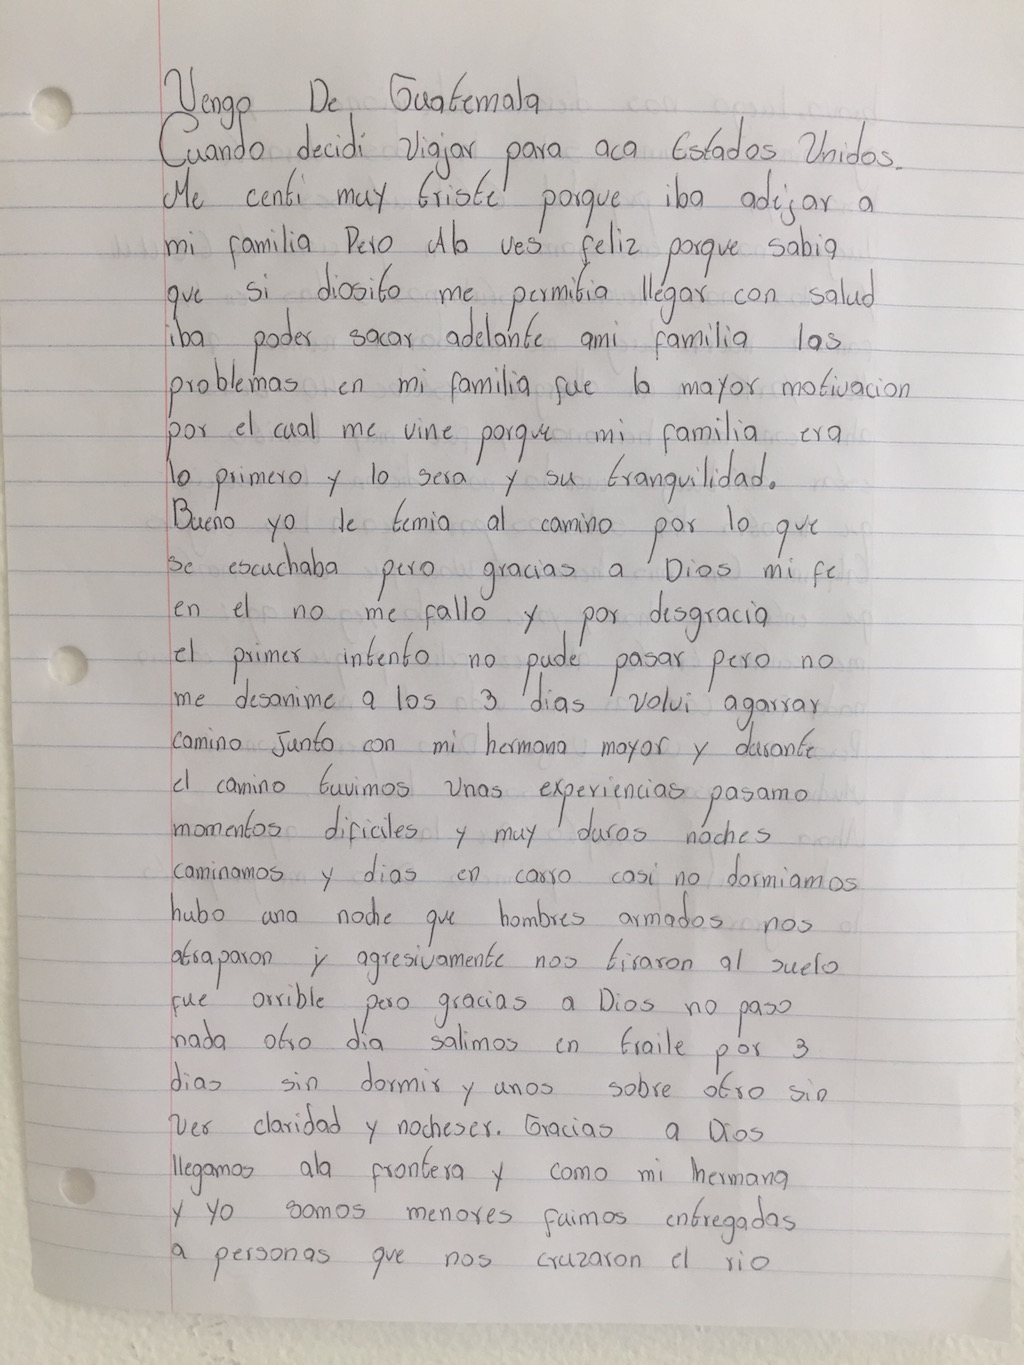 Vengo De Guatemala
Cuando decidi Viajar para aca Estados Unidos.
Me centi muy triste porque iba adejar a
mi familia Pero Ala ves feliz porque sabia
que si diosito me permitia llegar con salud
iba poder sacar adelante ami familia los
problemas en mi familia fue la mayor motivacion
por el cual me vine porque mi familia era
lo primero y lo sera y su tranquilidad.
Bueno yo le temia al camino por lo que
se escuchaba pero gracias a Dios mi fe
en el no me fallo y por desgracia
el primer intento no pude pasar pero no
me desanime a los 3 dias volvi agarrar
camino Junto con mi hermana mayor y durante
el camino tuvimos Unas experiencias pasamo
momentos dificiles y muy duros noches
caminamos y dias en carro casi no dormiamos
hubo una noche que hombres armados nos
atraparon y agresivamente nos tiraron al suelo
fue orrible pero gracias a Dios no paso
nada otro dia salimos en traile por 3
dias sin dormir y unos sobre otro sin
Ver claridad y nocheser. Gracias a Dios
llegamos ala frontera y como mi hermana
y yo somos menores fuimos entregadas
a personas que nos cruzaron el rio